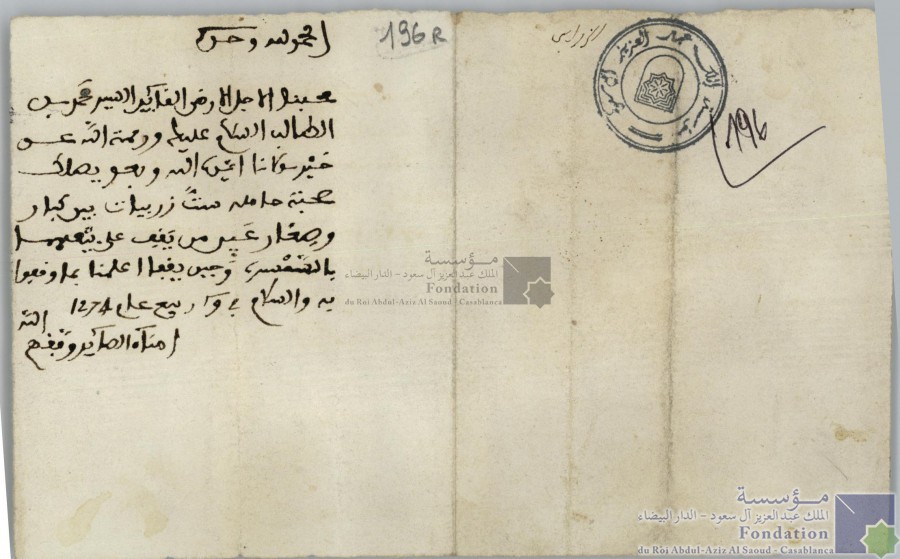 الحمد لله وحده
196 R
محبنا الاجل الارضى القايد السيد محمد بن
الطالب السلام عليك ورحمة الله عن
خير مولانا ايده الله وبعد يصلك
صحبة حامله ست زربيات بين كبار
وصغار عين من يقف على بيعها
بالتفسير وحين يقع اعلمنا بما وقع
به والسلام في ربيع عام 1274
امناه الصاير وفقهم الله
196
مؤسسة
الملك عبد العزيز آل سعود - الدار البيضاء
Fondation
du Roi Abdul-Aziz Al Saoud - Casablanca
مؤسسة
الملك عبد العزيز آل سعود - الدار البيضاء
Fondation
du Roi Abdul-Aziz Al Saoud - Casablanca